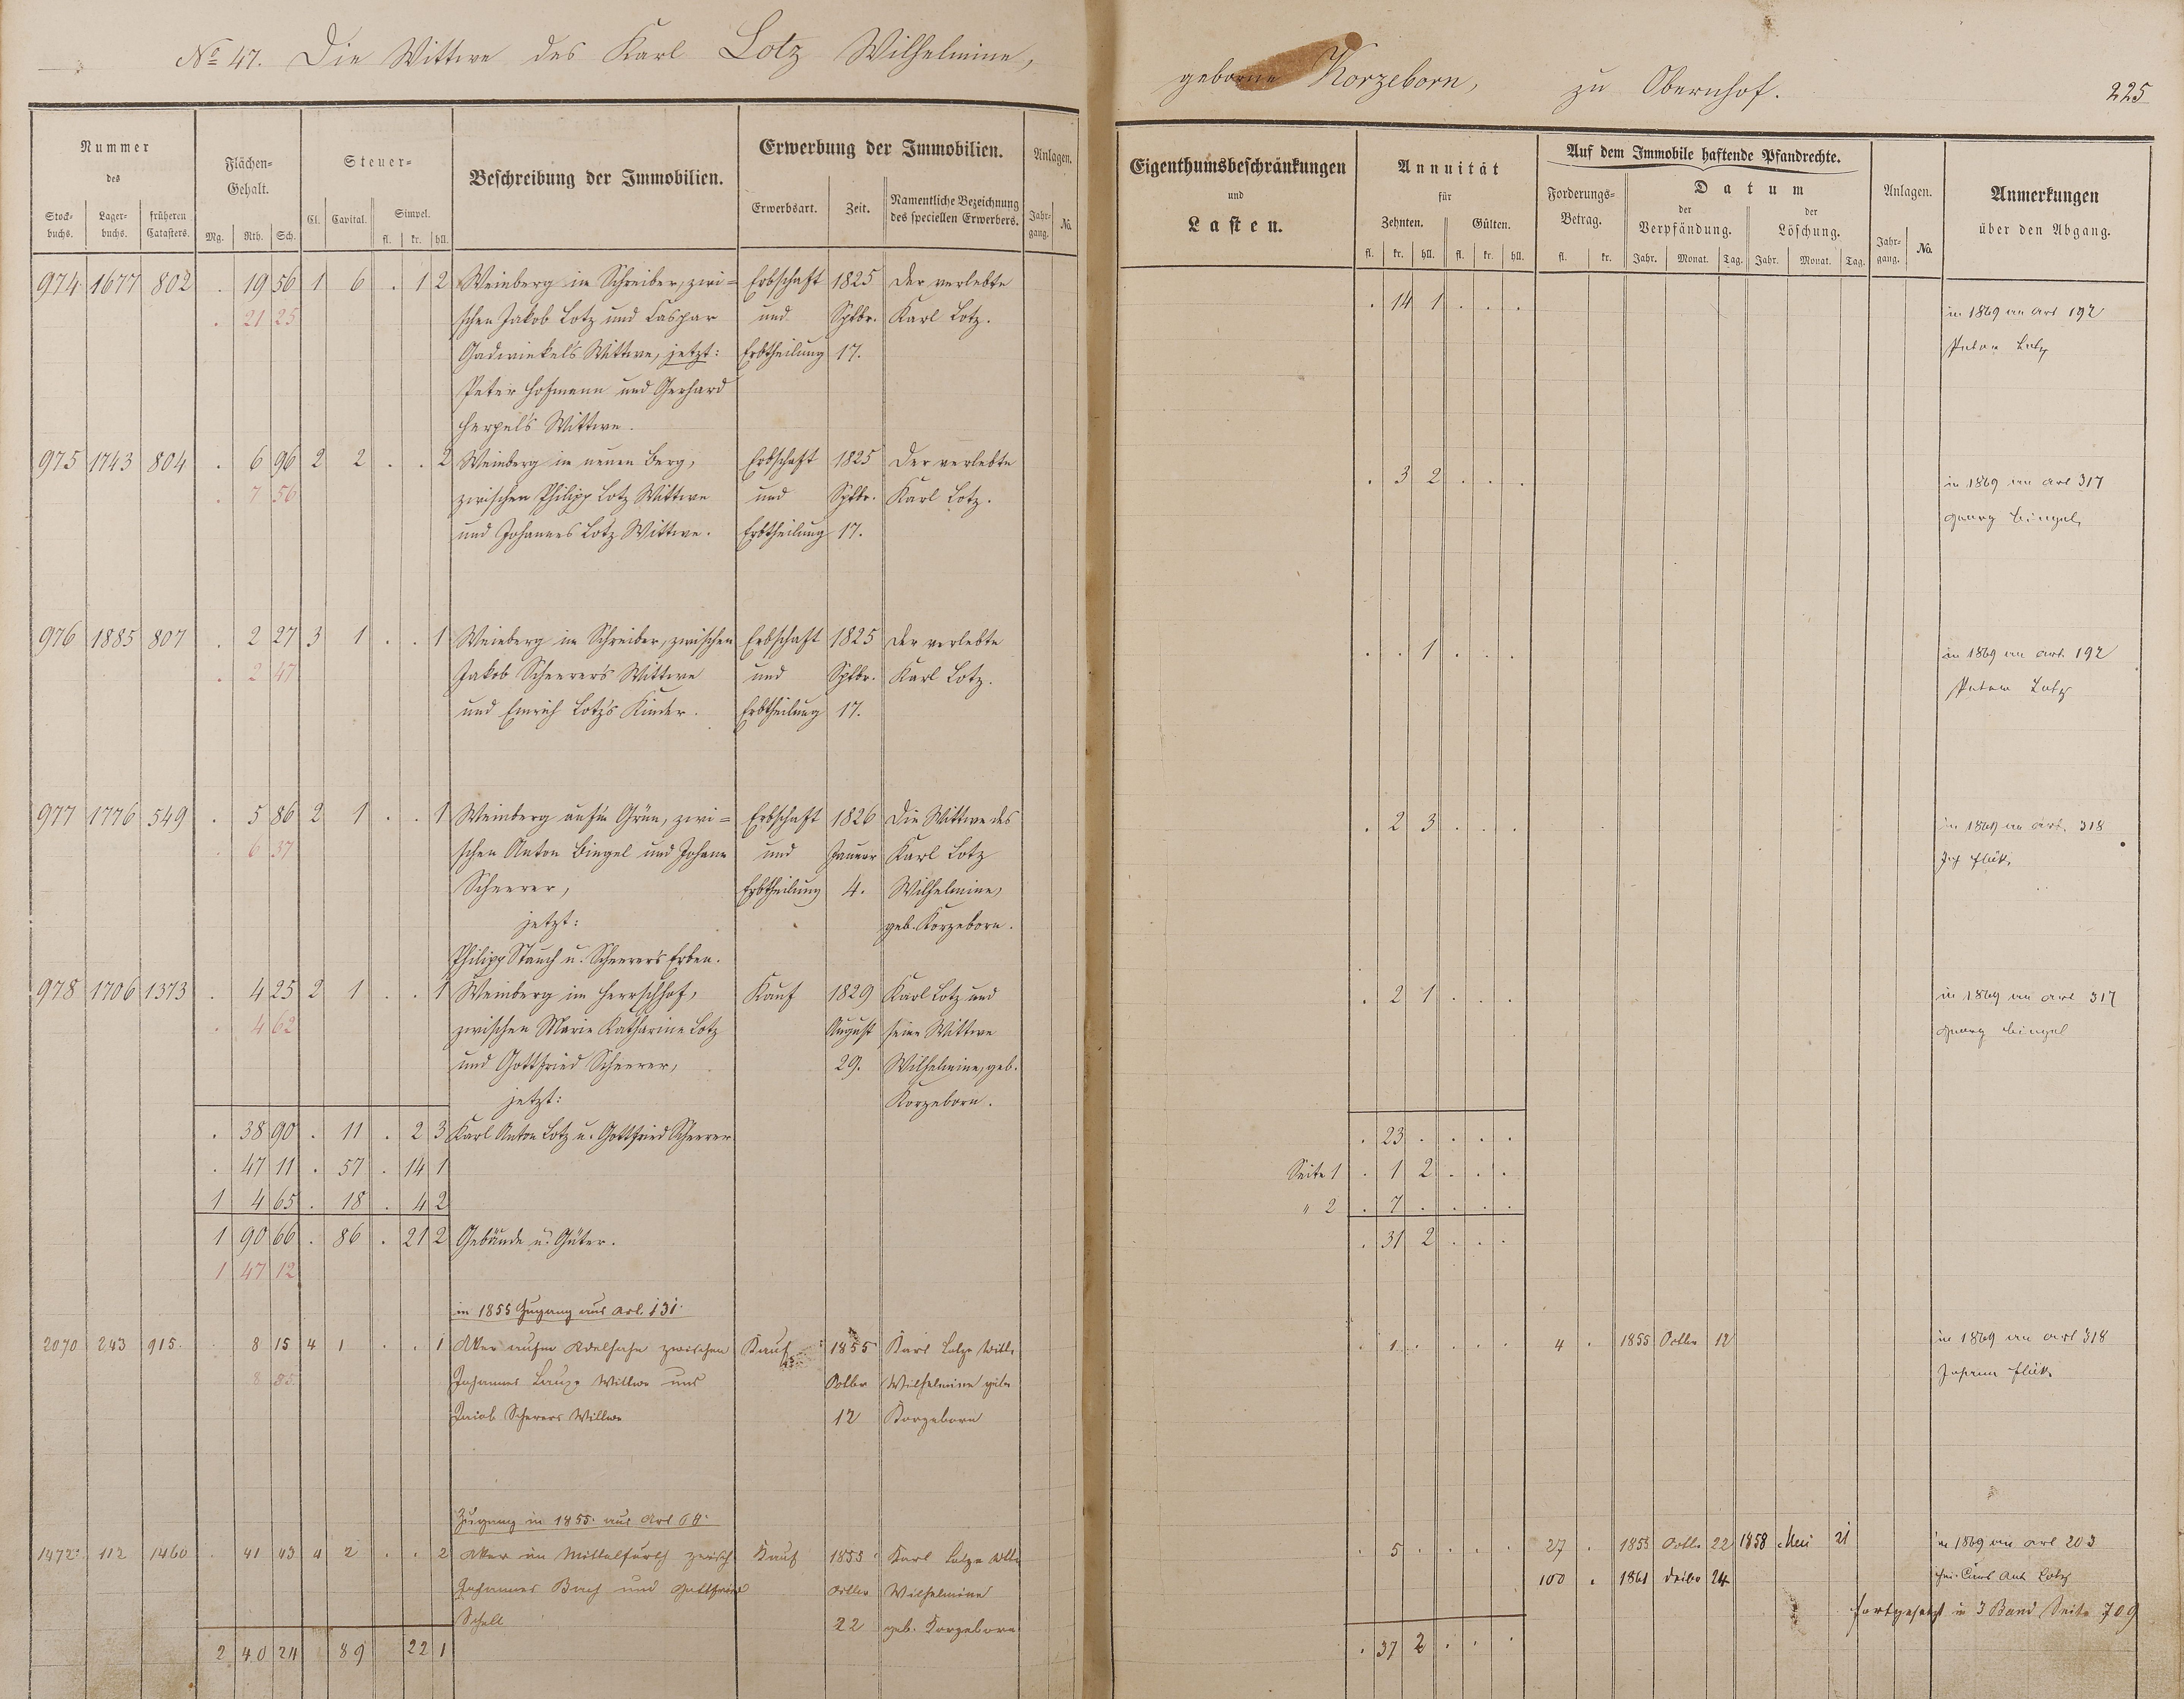 No 47. Die Wittwe des Karl Lotz Wilhelmine, geborne Korzeborn, zu Obernhof.
225
Nummer des
Stockbuchs. Lagerbuchs. früheren Catasters.
Flächen-Gehalt.
Mg. Rth. Sch.
Steuer-
Cl. Capital. Simpel.
fl. kr. hll.
Beschreibung der Immobilien.
Erwerbung der Immobilien.
Erwerbsart. Zeit. Namentliche Bezeichnung des speciellen Erwerbers.
Anlagen.
Jahrgang. No.
Eigenthumsbeschränkungen
und
Lasten.
Annuität
für
Zehnten. Gülten.
fl. kr. hll. fl. kr. hll.
Auf dem Immobile haftende Pfandrechte.
Forderungs-Betrag.
fl. kr.
Datum
der Verpfändung. der Löschung.
Jahr. Monat. Tag. Jahr. Monat. Tag.
Anlagen.
Jahrgang. No.
Anmerkungen
über den Abgang.
974 1677 802 . 19 56 1 6 . 1 2 Weinberg im Schreiber, zwi= Erbschaft 1825 Der verlebte . 14 1 . . . in 1869 an Art 192
. 21 25 schen Jakob Lotz und Caspar und Sptbr. Karl Lotz. Peter Lotz
Gadwinkel's Wittwe, jetzt: Erbtheilung 17.
Peter Hofmann und Gerhard
Herpel's Wittwe.
975 1743 804 . 6 96 2 2 . . 2 Weinberg im neuen Berg, Erbschaft 1825 Der verlebte . 3 2 . . . in 1869 an Art 317
. 7 56 zwischen Philipp Lotz Wittwe und Sptbr. Karl Lotz. Georg Bingel
und Johannes Lotz Wittwe. Erbtheilung 17.
976 1885 807 . 2 27 3 1 . . 1 Weinberg im Schreiber, zwischen Erbschaft 1825 Der verlebte . . 1 . . . in 1869 an Art. 192
. 2 47 Jakob Scheerer's Wittwe und Sptbr. Karl Lotz. Peter Lotz
und Emrich Lotz's Kinder. Erbtheilung 17.
977 1776 549 . 5 86 2 1 . . 1 Weinberg auf'm Grün, zwi= Erbschaft 1826 Die Wittwe des . 2 3 . . . in 1869 an Art. 318
. 6 37 schen Anton Bingel und Johann und Januar Karl Lotz Joh Flük.
Scheerer, Erbtheilung 4. Wilhelmine,
jetzt: geb. Korzeborn.
Philipp Stauch u. Scheerer's Erben.
978 1706 1373 . 4 25 2 1 . . 1 Weinberg im Herrschhof, Kauf 1829 Karl Lotz und . 2 1 . . . in 1869 an Art 317
. 4 62 zwischen Marie Katharine Lotz August seine Wittwe Georg Bingel
und Gottfried Scheerer, 29. Wilhelmine, geb.
jetzt: Korzeborn.
. 38 90 . 11 . 2 3 Karl Anton Lotz u. Gottfried Scheerer . 23 . . . .
. 47 11 . 57 . 14 1 Seite 1 . 1 2 . . .
1 4 65 . 18 . 4 2 " 2 . 7 . . . .
1 90 66 . 86 . 21 2 Gebäude u. Güter. . 31 2 . . .
1 47 12
in 1855 Zugang aus Art. 131.
2070 243 915. . 8 15 4 1 . . 1 Aker aufm zwischen Kauf 1855 Karl Lotz Witt. . 1 . . . . 4 . 1855 Octbr 12 in 1869 an Art 318
8 85 Johannes Wittwe und Octbr Wilhelmine geb. Johann Flük.
Jacob Scherers Wittwe 12 Korzeborn
Zugang in 1855. aus Art 68.
1472 112 1460 . 41 43 4 2 . . 2 Aker im zwisch Kauf 1855 Karl Lotz Wtw . 5 . . . . 27 . 1855 Octbr 22 1858 Mai 21 in 1869 an Art 203
Johannes Bach und Gottfried Octbr Wilhelmine 100 . 1861 24 Carl Ant Lotz
Schell 22 geb. Korzeborn fortgesetzt in 3 Band Seite 709
2 40 24 89 22 1 . 37 2 . . .